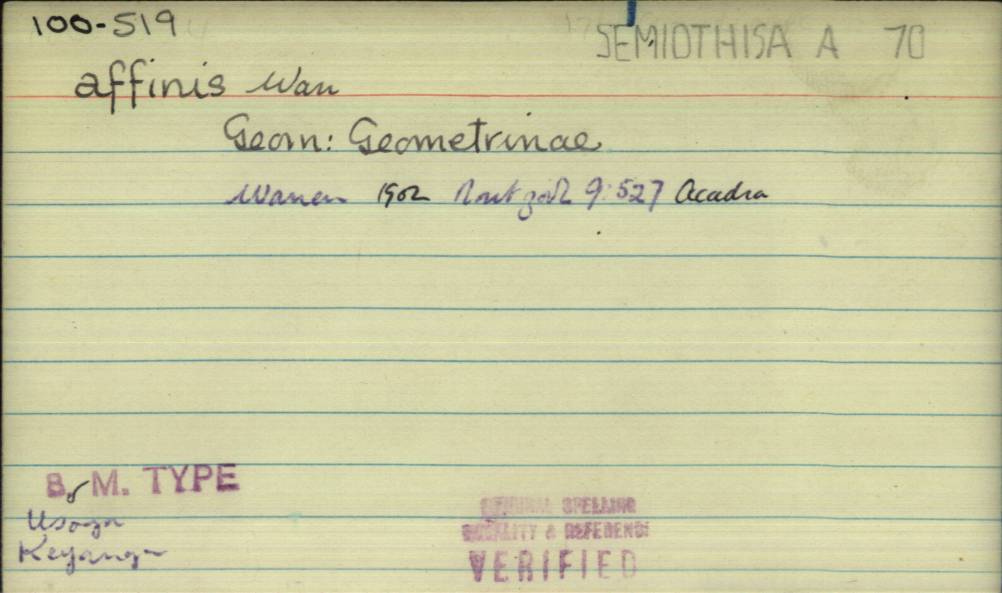 100-519
SEMIOTHISA A 70
affinis Warr
Geom: Geometrinae
Warren 1902 Novit zool 9:527 Acadra
B. M. TYPE
Usoga
ORIGINAL SPELLING
LOCALITY & REFERENCE
VERIFIED